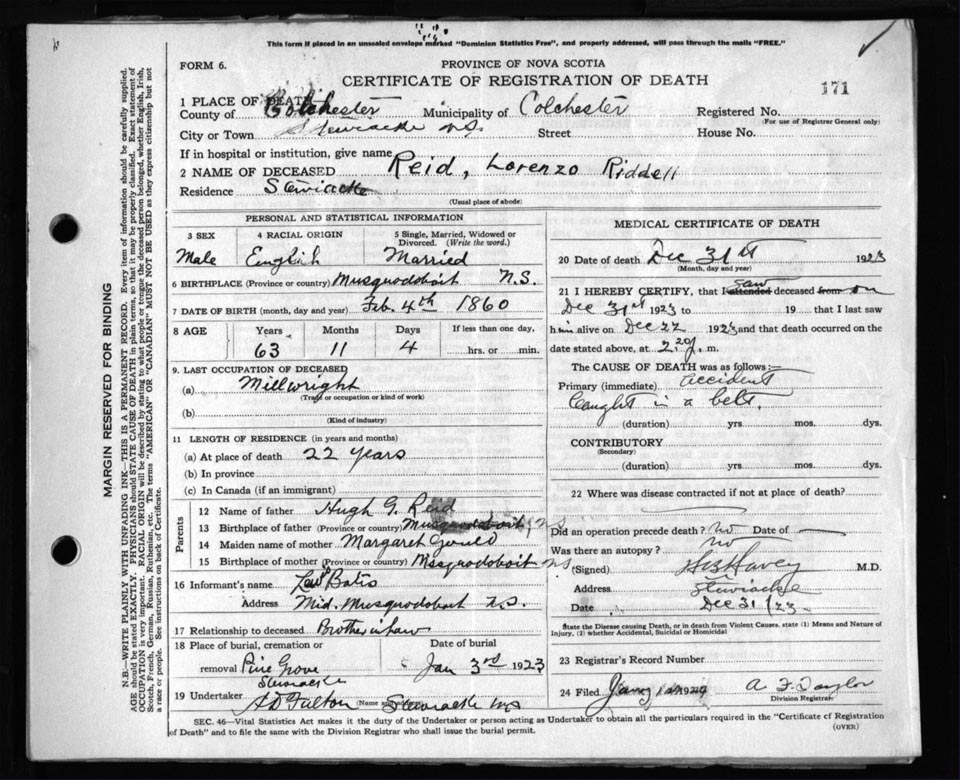 This form if placed in an unsealed envelope marked "Dominion Statistics Free", and properly addressed, will pass through the mails "FREE."
FORM 6.
PROVINCE OF NOVA SCOTIA
CERTIFICATE OF REGISTRATION OF DEATH
171
1 PLACE OF DEATH
County of Colchester Municipality of Colchester Registered No.
(For use of Registrar General only)
City or Town Stewiacke N.S. Street House No.
If in hospital or institution, give name
2 NAME OF DECEASED Reid, Lorenzo Riddell
Residence Stewiacke
(Usual place of abode)
PERSONAL AND STATISTICAL INFORMATION
3 SEX 4 RACIAL ORIGIN 5 Single, Married, Widowed or Divorced. (Write the word.)
Male English Married
6 BIRTHPLACE (Province or country) Musquodoboit N.S.
7 DATE OF BIRTH (month, day and year) Feb. 4th 1860
8 AGE Years Months Days If less than one day,
63 11 4 hrs. or min.
9. LAST OCCUPATION OF DECEASED
(a) Millwright
(Trade or occupation or kind of work)
(b)
(Kind of industry)
11 LENGTH OF RESIDENCE (in years and months)
(a) At place of death 22 years
(b) In province
(c) In Canada (if an immigrant)
Parents
12 Name of father Hugh G. Reid
13 Birthplace of father (Province or country) Musquodoboit, NS
14 Maiden name of mother Margaret Gould
15 Birthplace of mother (Province or country) Mssquodoboit NS
16 Informant's name Bates
Address Mid. Musquodoboit N.S.
17 Relationship to deceased Brother in law
18 Place of burial, cremation or removal Date of burial
Pine Grove Jan 3rd 1923
Stewiacke
19 Undertaker A D Fulton Stewiacke NS
(Name and address)
MEDICAL CERTIFICATE OF DEATH
20 Date of death Dec 31st 1923
(Month, day and year)
21 I HEREBY CERTIFY, that I attended saw deceased from on
Dec 31st 1923 to 19 that I last saw
him alive on Dec 22 1923 and that death occurred on
date stated above, at m.
The CAUSE OF DEATH was as follows:—
Primary (immediate) accident
Caught in a belt.
(duration) yrs. mos. dys.
CONTRIBUTORY
(Secondary)
(duration) yrs. mos. dys.
22 Where was disease contracted if not at place of death?
Did an operation precede death? no Date of
Was there an autopsy? no
(Signed) Havey M.D.
Address Stewiacke
Date Dec 31/23
State the Disease causing Death, or in death from Violent Causes, state (1) Means and Nature of
Injury, (2) whether Accidental, Suicidal or Homicidal
23 Registrar's Record Number
24 Filed A. F. Taylor
Division Registrar.
SEC. 46—Vital Statistics Act makes it the duty of the Undertaker or person acting as Undertaker to obtain all the particulars required in the "Certificate of Registration
of Death" and to file the same with the Division Registrar who shall issue the burial permit.
(OVER)
MARGIN RESERVED FOR BINDING
N.B.—WRITE PLAINLY WITH UNFADING INK—THIS IS A PERMANENT RECORD. Every item of information should be carefully supplied.
AGE should be stated EXACTLY. PHYSICIANS should STATE CAUSE OF DEATH in plain terms, so that it may be properly classified. Exact statement of
OCCUPATION is very important. RACIAL ORIGIN will be described by stating to what people or tongue the deceased person belonged, whether English, Irish,
Scotch, French, German, Russian, Ruthenian, etc. The terms "AMERICAN" OR "CANADIAN" MUST NOT BE USED as they express citizenship but not
a race or people. See instructions on back of Certificate.